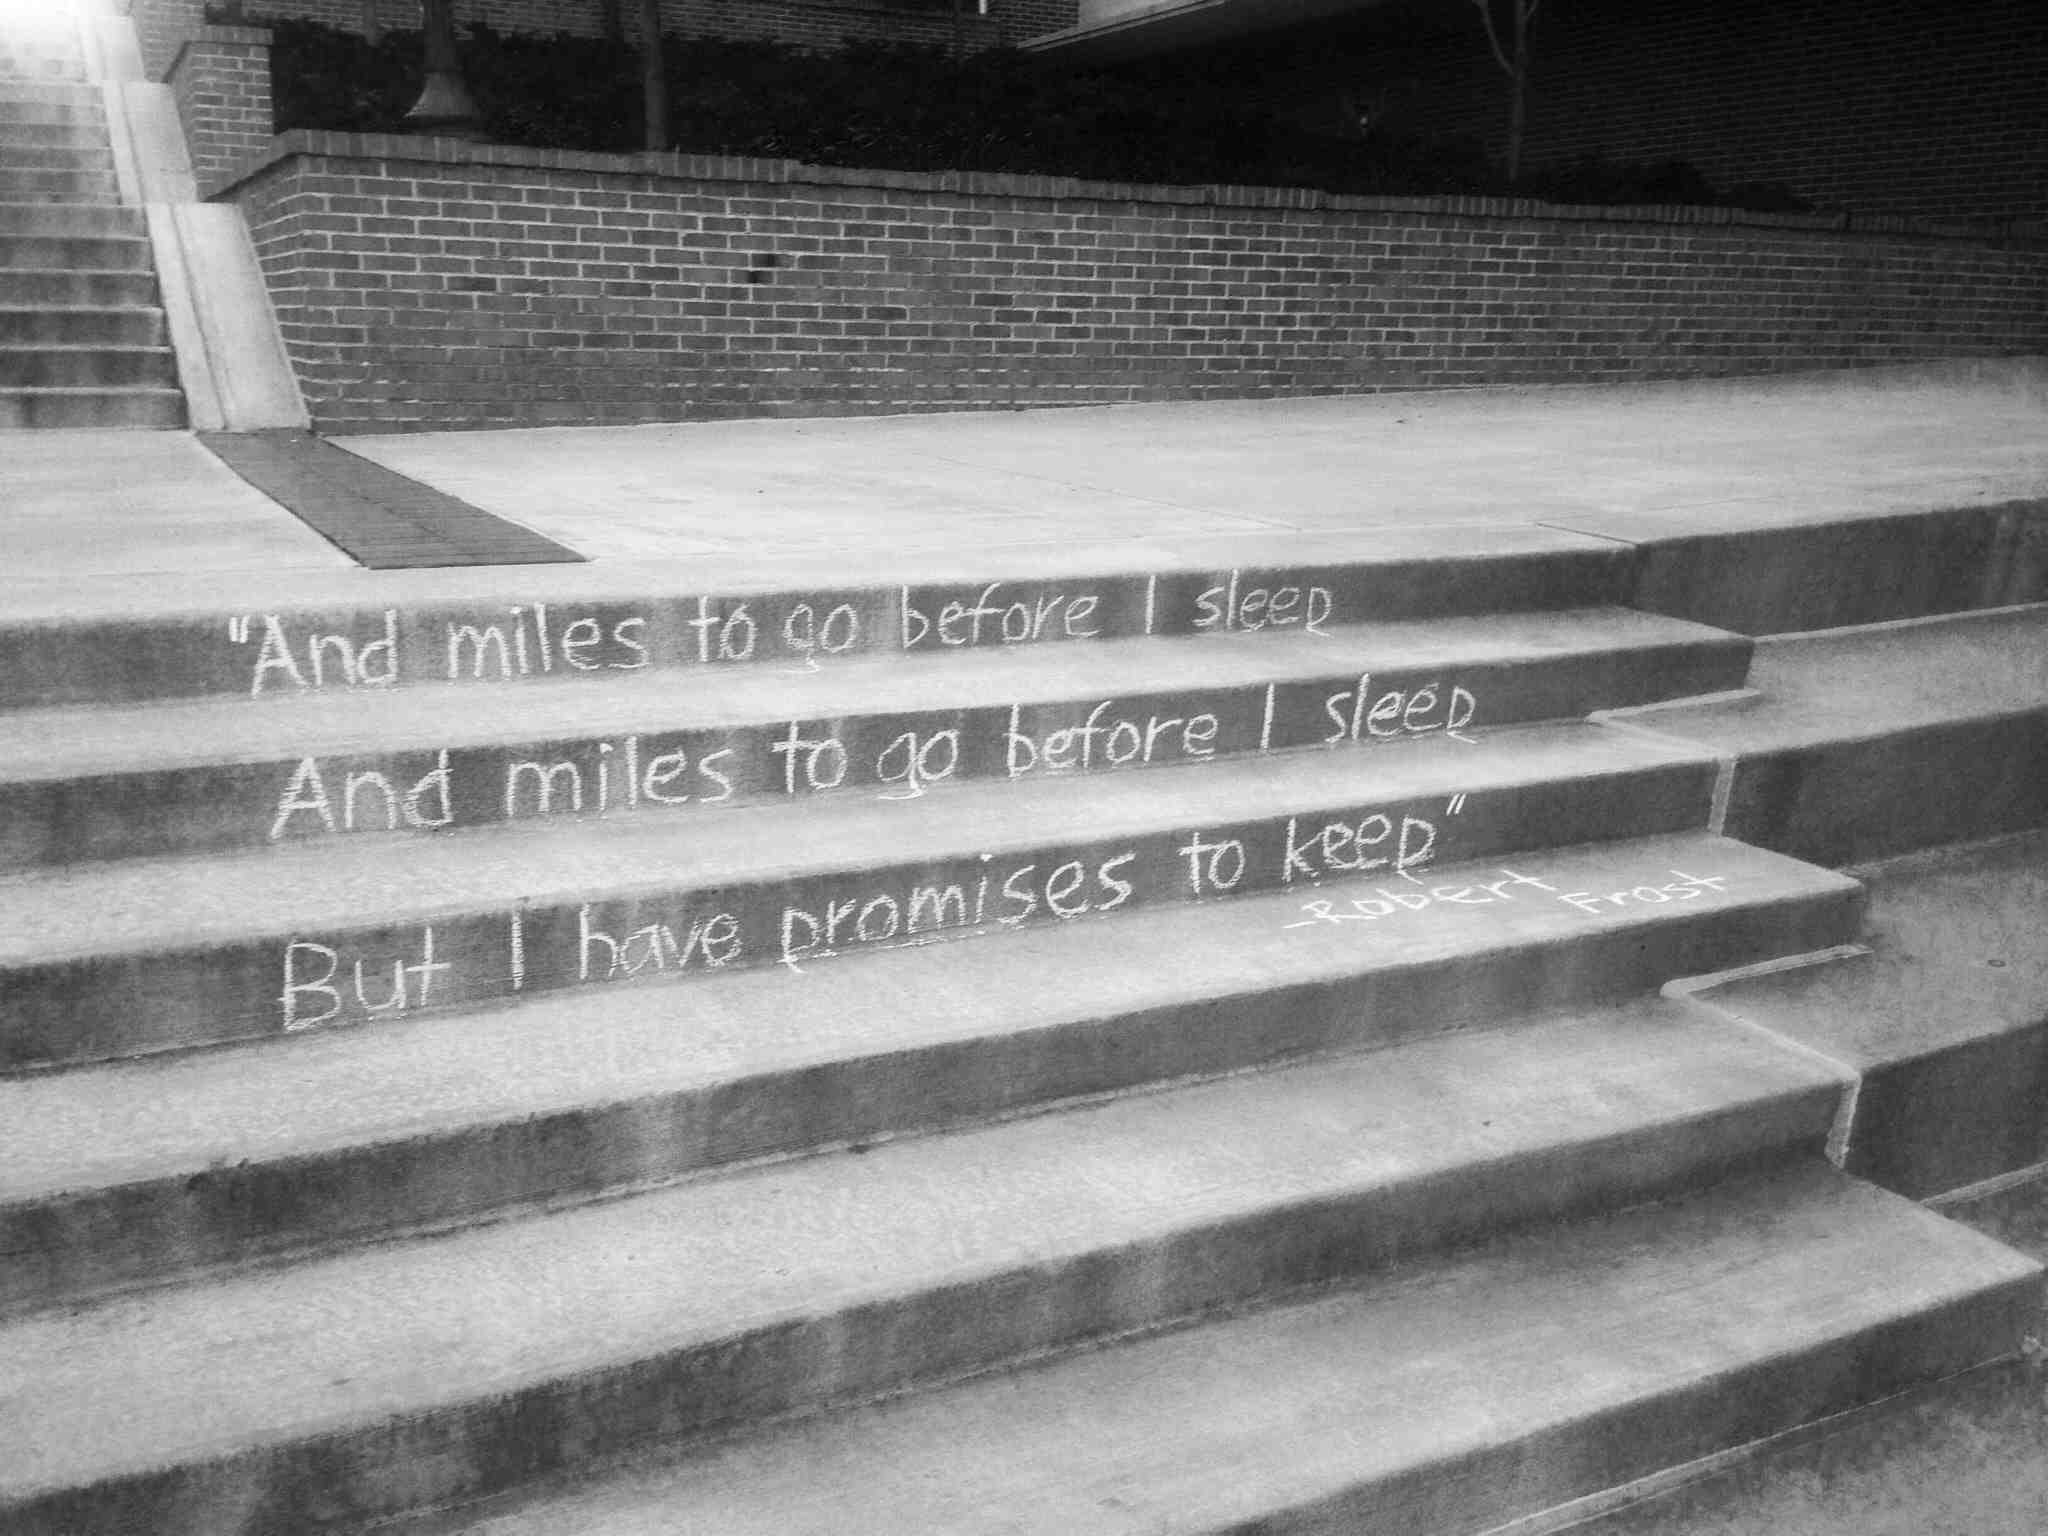 "And miles to go before I sleep
And miles to go before I sleep
But I have promises to keep"
-Robert Frost